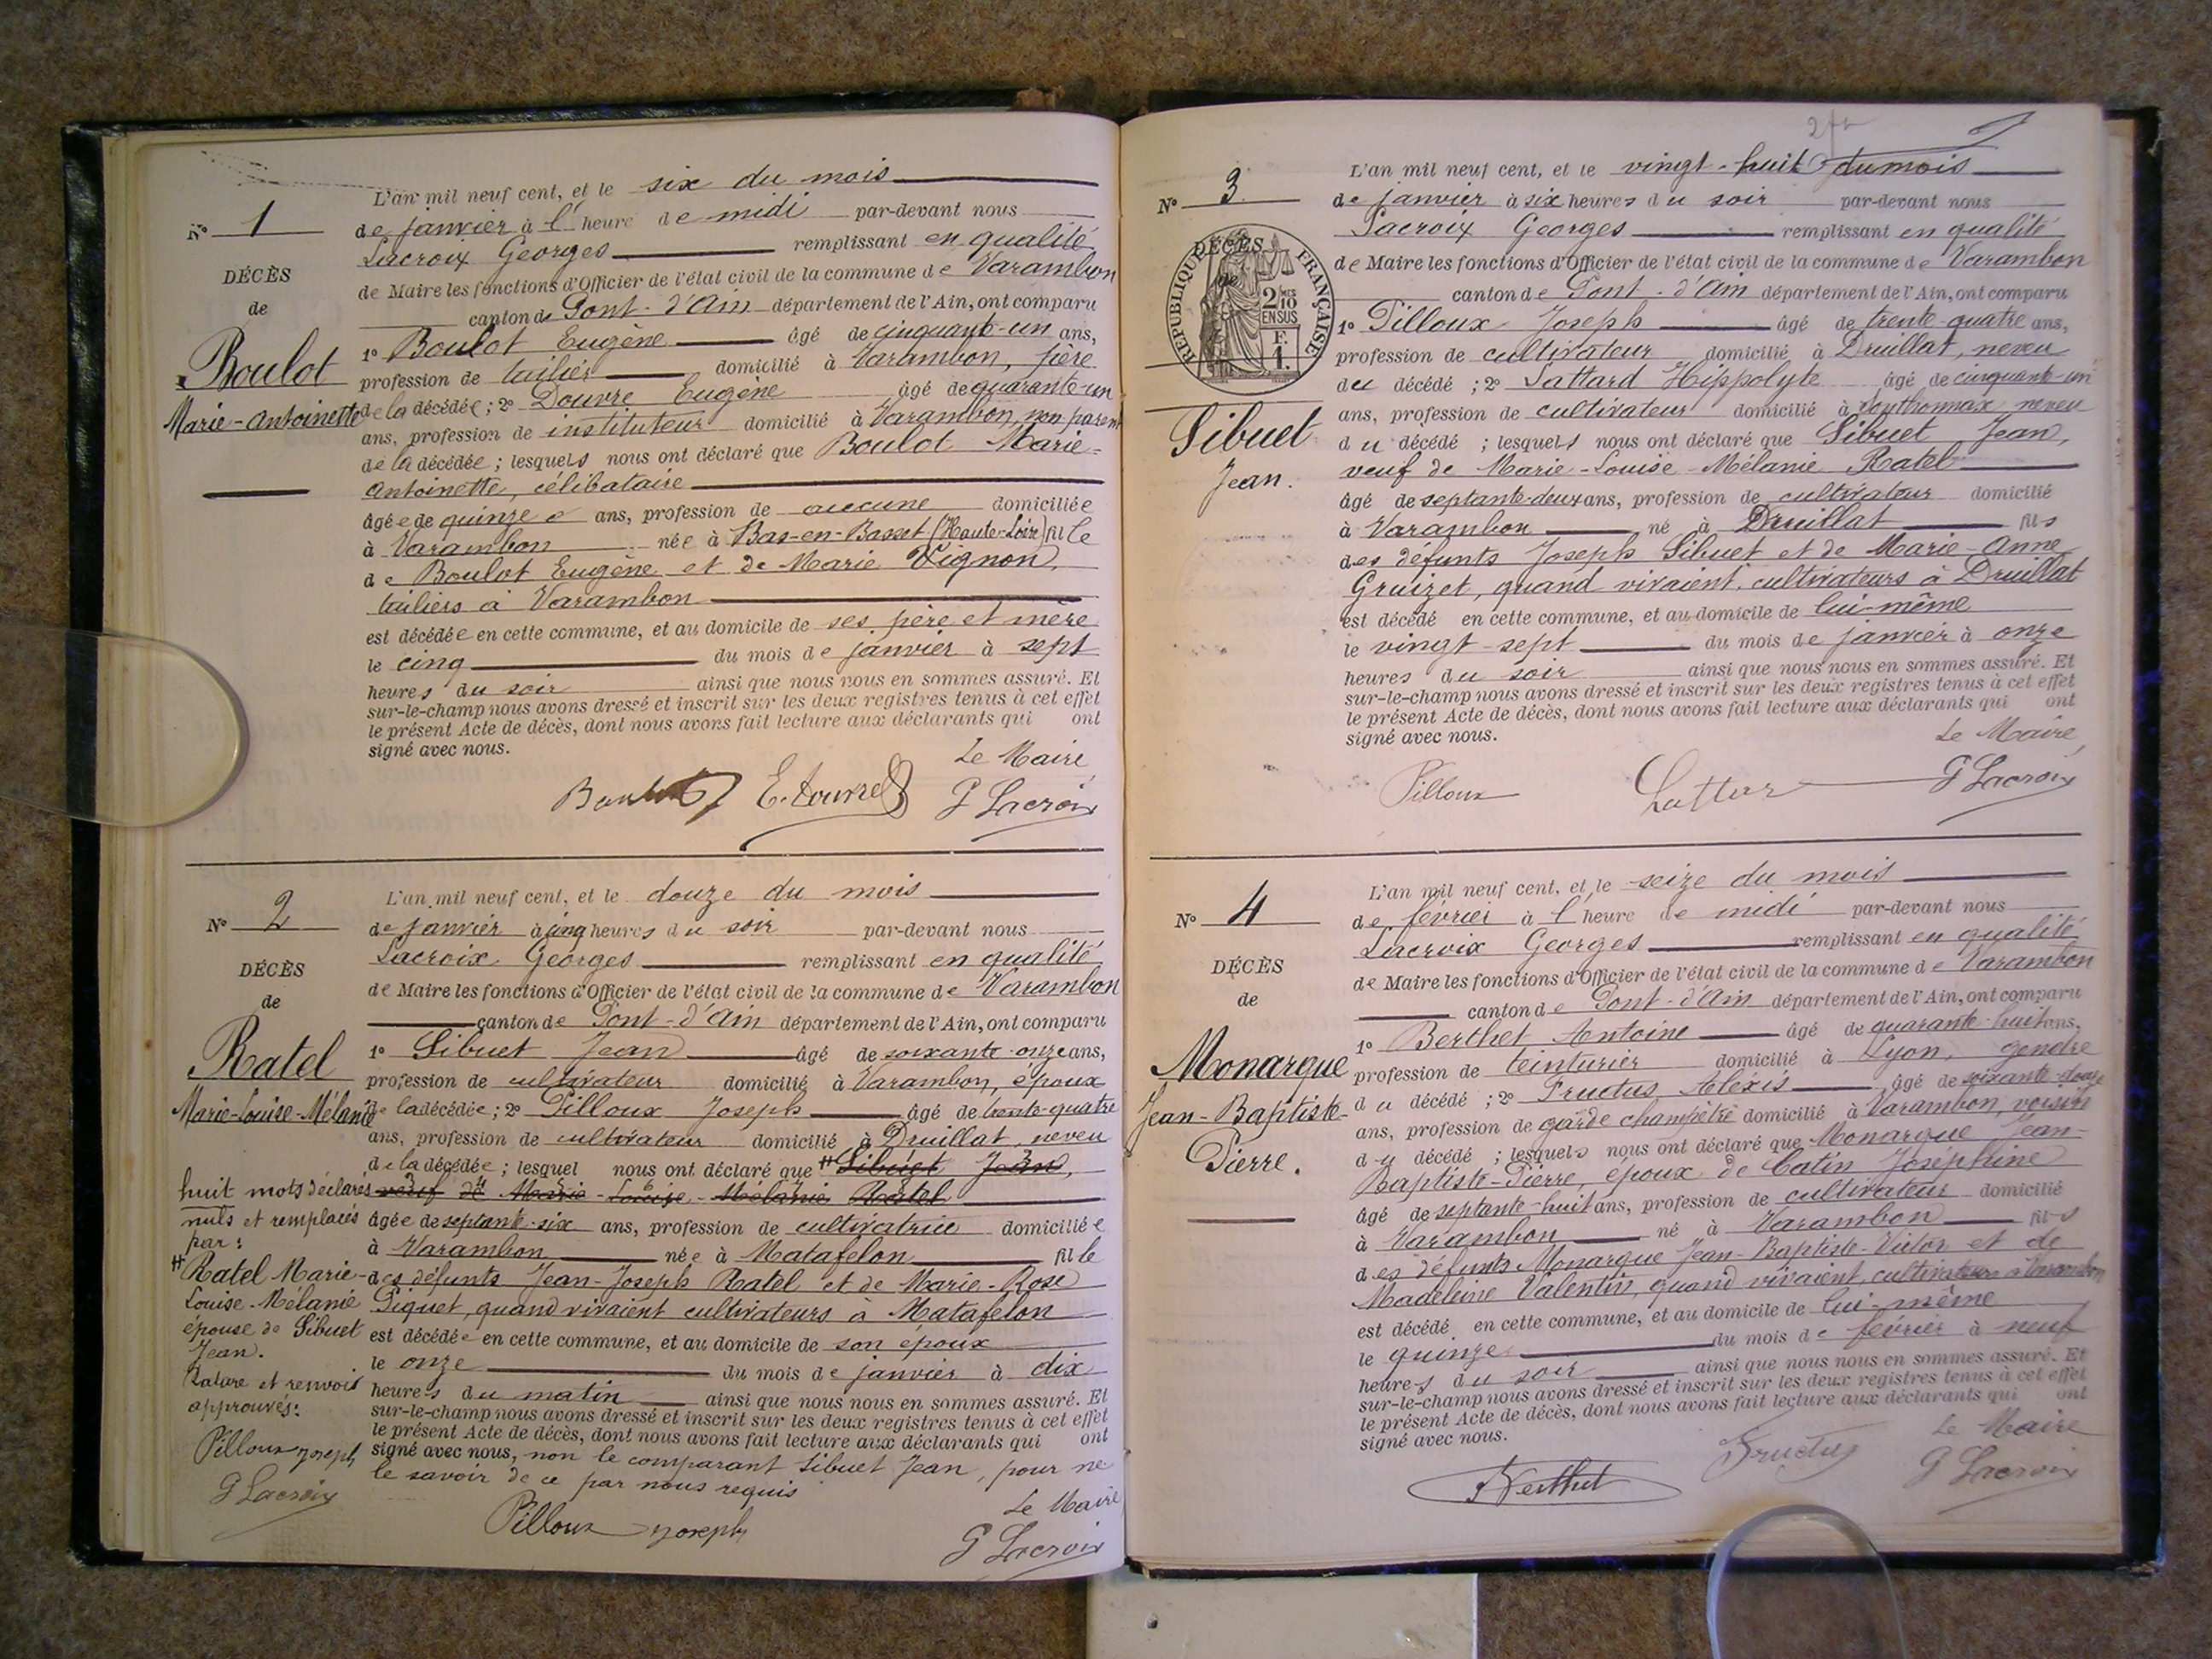 L'an mil neuf cent, et le six du mois
Nº 1
de janvier à l'heure de midi par-devant nous
Lacroix Georges remplissant en qualité
DÉCÈS
de Maire les fonctions d'Officier de l'état civil de la commune de Varambon
de
canton de Pont-d'Ain département de l'Ain, ont comparu
Boulot
1º Boulot Eugène âgé de cinquante-un ans,
profession de tuilier domicilié à Varambon, père
Marie-Antoinette
de la décédée; 2º Douvre Eugène âgé de quarante-un
ans, profession de instituteur domicilié à Varambon, non parent
de la décédée; lesquels nous ont déclaré que Boulot Marie-
Antoinette, célibataire
âgée de quinze ans, profession de aucune domiciliée
à Varambon née à Bas-en-Basset (Haute-Loire) fille
de Boulot Eugène et de Marie Vignon,
tuiliers à Varambon
est décédée en cette commune, et au domicile de ses père et mère
le cinq du mois de janvier à sept
heures du soir ainsi que nous nous en sommes assuré. Et
sur-le-champ nous avons dressé et inscrit sur les deux registres tenus à cet effet
le présent Acte de décès, dont nous avons fait lecture aux déclarants qui ont
signé avec nous.
Le Maire
Boulot E. Douvre G Lacroix
L'an mil neuf cent, et le douze du mois
Nº 2
de janvier à cinq heures du soir par-devant nous
Lacroix Georges remplissant en qualité
DÉCÈS
de Maire les fonctions d'Officier de l'état civil de la commune de Varambon
de
canton de Pont-d'Ain département de l'Ain, ont comparu
Ratel
1º Sibuet Jean âgé de soixante-onze ans,
profession de cultivateur domicilié à Varambon, époux
Marie-Louise-Mélanie
de la décédée; 2º Pilloux Joseph âgé de trente-quatre
ans, profession de cultivateur domicilié à Druillat, neveu
de la décédée; lesquel nous ont déclaré que # Sibuet Jean,
veuf de Marie-Louise-Mélanie Ratel
âgée de septante-six ans, profession de cultivatrice domiciliée
à Varambon née à Matafelon fille
des défunts Jean-Joseph Ratel et de Marie-Rose
Piquet, quand vivaient cultivateurs à Matafelon
est décédée en cette commune, et au domicile de son époux
le onze du mois de janvier à dix
heures du matin ainsi que nous nous en sommes assuré. Et
sur-le-champ nous avons dressé et inscrit sur les deux registres tenus à cet effet
le présent Acte de décès, dont nous avons fait lecture aux déclarants qui ont
signé avec nous, non le comparant Sibuet Jean, pour ne
le savoir de ce par nous requis
Le Maire
Pilloux Joseph G Lacroix
huit mots déclarés
nuls et remplacés
par:
# Ratel Marie-
Louise-Mélanie
épouse de Sibuet
Jean.
Rature et renvois
approuvés:
Pilloux Joseph
G Lacroix
L'an mil neuf cent, et le vingt-huit du mois
Nº 3
de janvier à six heures du soir par-devant nous
Lacroix Georges remplissant en qualité
RÉPUBLIQUE FRANÇAISE
2 10 MES EN SUS
F. 1.
DÉCÈS
de
de Maire les fonctions d'Officier de l'état civil de la commune de Varambon
canton de Pont-d'Ain département de l'Ain, ont comparu
1º Pilloux Joseph âgé de trente-quatre ans,
profession de cultivateur domicilié à Druillat, neveu
du décédé; 2º Lattard Hippolyte âgé de cinquante-un
ans, profession de cultivateur domicilié à neveu
Sibuet
du décédé; lesquels nous ont déclaré que Sibuet Jean,
Jean.
veuf de Marie-Louise-Mélanie Ratel
âgé de septante-deux ans, profession de cultivateur domicilié
à Varambon né à Druillat fils
des défunts Joseph Sibuet et de Marie-Anne
Gruizet, quand vivaient, cultivateurs à Druillat
est décédé en cette commune, et au domicile de lui-même
le vingt-sept du mois de janvier à onze
heures du soir ainsi que nous nous en sommes assuré. Et
sur-le-champ nous avons dressé et inscrit sur les deux registres tenus à cet effet
le présent Acte de décès, dont nous avons fait lecture aux déclarants qui ont
signé avec nous.
Le Maire,
Pilloux G Lacroix
L'an mil neuf cent, et le seize du mois
Nº 4
de février à l'heure de midi par-devant nous
Lacroix Georges remplissant en qualité
DÉCÈS
de Maire les fonctions d'Officier de l'état civil de la commune de Varambon
de
canton de Pont-d'Ain département de l'Ain, ont comparu
Monarque
1º Berthet Antoine âgé de quarante-huit ans,
profession de teinturier domicilié à Lyon, gendre
Jean-Baptiste-
du décédé; 2º Fructus Aléxis âgé de soixante-douze
Pierre.
ans, profession de garde champêtre domicilié à Varambon, voisin
du décédé; lesquels nous ont déclaré que Monarque Jean-
Baptiste-Pierre, époux de Catin Joséphine
âgé de septante-huit ans, profession de cultivateur domicilié
à Varambon né à Varambon fils
des défunts Monarque Jean-Baptiste-Victor et de
Madeleine Valentin, quand vivaient, cultivateurs à Varambon
est décédé en cette commune, et au domicile de lui-même
le quinze du mois de février à neuf
heures du soir ainsi que nous nous en sommes assuré. Et
sur-le-champ nous avons dressé et inscrit sur les deux registres tenus à cet effet
le présent Acte de décès, dont nous avons fait lecture aux déclarants qui ont
signé avec nous.
Le Maire
Berthet Fructus G Lacroix